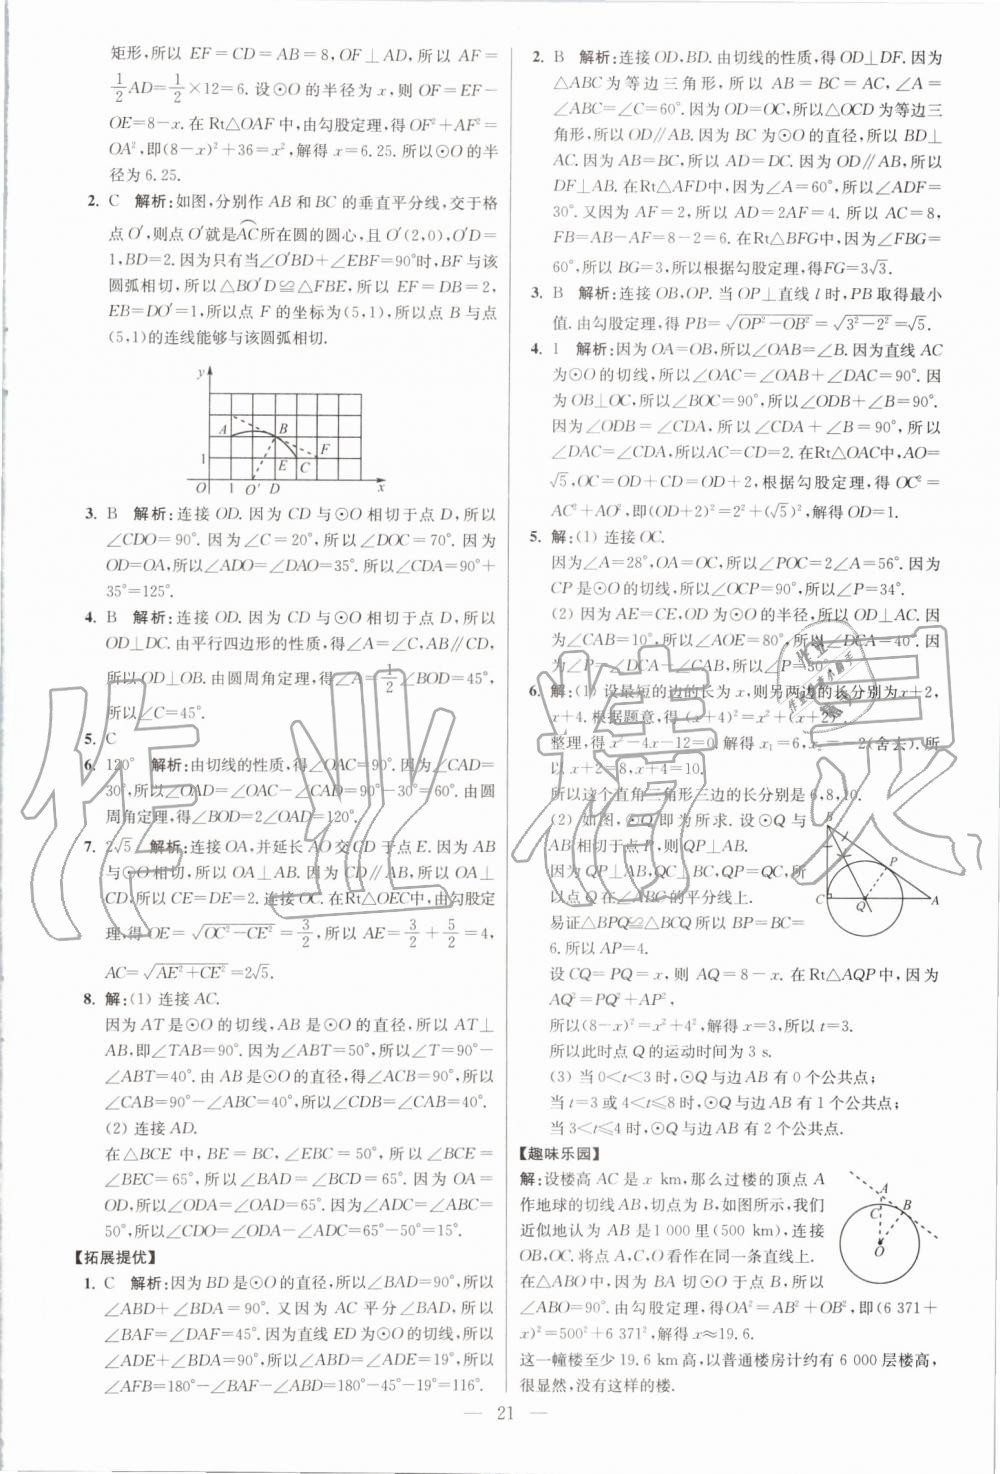 矩形,所以 EF=CD=AB=8,OF⊥AD,所以 AF=
1/2AD=1/2×12=6. 设⊙O 的半径为 x,则 OF=EF-
OE=8-x. 在 Rt△OAF 中,由勾股定理,得 OF²+AF²=
OA²,即(8-x)²+36=x²,解得 x=6.25. 所以⊙O 的半
径为 6.25.
2. C 解析:如图,分别作 AB 和 BC 的垂直平分线,交于格
点 O′,则点 O′就是AC所在圆的圆心,且 O′(2,0),O′D=
1,BD=2. 因为只有当∠O′BD+∠EBF=90°时,BF 与该
圆弧相切,所以△BO′D≌△FBE,所以 EF=DB=2,
EB=DO′=1,所以点 F 的坐标为(5,1),所以点 B 与点
(5,1)的连线能够与该圆弧相切.
y
A B
1 E C F
O 1 O′ D x
3. B 解析:连接 OD. 因为 CD 与⊙O 相切于点 D,所以
∠CDO=90°. 因为∠C=20°,所以∠DOC=70°. 因为
OD=OA,所以∠ADO=∠DAO=35°. 所以∠CDA=90°+
35°=125°.
4. B 解析:连接 OD. 因为 CD 与⊙O 相切于点 D,所以
OD⊥DC. 由平行四边形的性质,得∠A=∠C,AB∥CD,
所以 OD⊥OB. 由圆周角定理,得∠A=1/2∠BOD=45°,
所以∠C=45°.
5. C
6. 120° 解析:由切线的性质,得∠OAC=90°. 因为∠CAD=
30°,所以∠OAD=∠OAC-∠CAD=90°-30°=60°. 由圆
周角定理,得∠BOD=2∠OAD=120°.
7. 2√5 解析:连接 OA,并延长 AO 交 CD 于点 E. 因为 AB
与⊙O 相切,所以 OA⊥AB. 因为 CD∥AB,所以 OA⊥
CD,所以 CE=DE=2. 连接 OC. 在Rt△OEC中,由勾股定
理,得 OE=√(OC²-CE²)=3/2,所以 AE=3/2+5/2=4,
AC=√(AE²+CE²)=2√5.
8. 解:(1) 连接 AC.
因为 AT 是⊙O 的切线,AB 是⊙O 的直径,所以 AT⊥
AB,即∠TAB=90°. 因为∠ABT=50°,所以∠T=90°-
∠ABT=40°. 由 AB 是⊙O 的直径,得∠ACB=90°,所以
∠CAB=90°-∠ABC=40°,所以∠CDB=∠CAB=40°.
(2) 连接 AD.
在△BCE 中,BE=BC,∠EBC=50°,所以∠BCE=
∠BEC=65°,所以∠BAD=∠BCD=65°. 因为 OA=
OD,所以∠ODA=∠OAD=65°. 因为∠ADC=∠ABC=
50°,所以∠CDO=∠ODA-∠ADC=65°-50°=15°.
【拓展提优】
1. C 解析:因为 BD 是⊙O 的直径,所以∠BAD=90°,所以
∠ABD+∠BDA=90°. 又因为 AC 平分∠BAD,所以
∠BAF=∠DAF=45°. 因为直线 ED 为⊙O 的切线,所以
∠ADE+∠BDA=90°,所以∠ABD=∠ADE=19°,所以
∠AFB=180°-∠BAF-∠ABD=180°-45°-19°=116°.
2. B 解析:连接 OD,BD. 由切线的性质,得 OD⊥DF. 因为
△ABC 为等边三角形,所以 AB=BC=AC,∠A=
∠ABC=∠C=60°. 因为 OD=OC,所以△OCD 为等边三
角形,所以 OD∥AB. 因为 BC 为⊙O 的直径,所以 BD⊥
AC. 因为 AB=BC,所以 AD=DC. 因为 OD∥AB,所以
DF⊥AB. 在Rt△AFD中,因为∠A=60°,所以∠ADF=
30°. 又因为 AF=2,所以 AD=2AF=4. 所以 AC=8,
FB=AB-AF=8-2=6. 在Rt△BFG中,因为∠FBG=
60°,所以 BG=3,所以根据勾股定理,得FG=3√3.
3. B 解析:连接 OB,OP. 当 OP⊥直线 l 时,PB 取得最小
值. 由勾股定理,得 PB=√(OP²-OB²)=√(3²-2²)=√5.
4. 1 解析:因为 OA=OB,所以∠OAB=∠B. 因为直线 AC
为⊙O 的切线,所以∠OAC=∠OAB+∠DAC=90°. 因
为 OB⊥OC,所以∠BOC=90°,所以∠ODB+∠B=90°.
因为∠ODB=∠CDA,所以∠CDA+∠B=90°,所以
∠DAC=∠CDA,所以AC=CD=2. 在Rt△OAC中,AO=
√5,OC=OD+CD=OD+2,根据勾股定理,得 OC²=
AC²+AO²,即(OD+2)²=2²+(√5)²,解得 OD=1.
5. 解:(1) 连接 OC.
因为∠A=28°,OA=OC,所以∠POC=2∠A=56°. 因为
CP 是⊙O 的切线,所以∠OCP=90°,所以∠P=34°.
(2) 因为 AE=CE,OD 为⊙O 的半径,所以 OD⊥AC. 因
为∠CAB=10°,所以∠AOE=80°,所以∠DCA=40°. 因
为∠P=∠DCA-∠CAB,所以∠P=30°.
6. 解:(1) 设最短的边的长为 x,则另两边的长分别为 x+2,
x+4. 根据题意,得(x+4)²=x²+(x+2)².
整理,得 x²-4x-12=0. 解得 x₁=6,x₂=-2(舍去). 所
以 x+2=8,x+4=10.
所以这个直角三角形三边的长分别是 6,8,10.
(2) 如图,⊙Q 即为所求. 设⊙Q 与
AB 相切于点 P,则 QP⊥AB.
因为 QP⊥AB,QC⊥BC,QP=QC,所
以点 Q 在∠ABC 的平分线上.
易证△BPQ≌△BCQ 所以 BP=BC=
6. 所以 AP=4.
B
P
C Q A
设 CQ=PQ=x,则 AQ=8-x. 在Rt△AQP中,因为
AQ²=PQ²+AP²,
所以(8-x)²=x²+4²,解得 x=3,所以 t=3.
所以此时点 Q 的运动时间为 3 s.
(3) 当 0<t<3 时,⊙Q 与边 AB 有 0 个公共点;
当 t=3 或 4<t≤8 时,⊙Q 与边 AB 有 1 个公共点;
当 3<t≤4 时,⊙Q 与边 AB 有 2 个公共点.
【趣味乐园】
解:设楼高 AC 是 x km,那么过楼的顶点 A
作地球的切线 AB,切点为 B,如图所示,我们
近似地认为 AB 是 1 000 里(500 km),连接
OB,OC. 将点 A,C,O 看作在同一条直线上.
在△ABO 中,因为 BA 切⊙O 于点 B,所以
∠ABO=90°. 由勾股定理,得OA²=AB²+OB²,即(6 371+
x)²=500²+6 371²,解得 x≈19.6.
这一幢楼至少 19.6 km 高,以普通楼房计约有 6 000 层楼高,
很显然,没有这样的楼.
A
C B
O
— 21 —
作业精灵